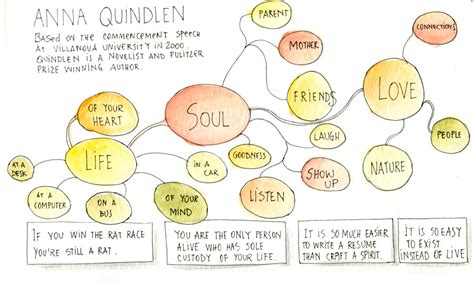 ANNA QUINDLEN
BASED ON THE COMMENCEMENT SPEECH
AT VILLANOVA UNIVERSITY IN 2000.
QUINDLEN IS A NOVELIST AND PULITZER
PRIZE WINNING AUTHOR.
PARENT
MOTHER
CONNECTIONS
OF YOUR
HEART
SOUL
FRIENDS
LOVE
LAUGH
PEOPLE
AT A
DESK
LIFE
IN A
CAR
GOODNESS
SHOW
UP
NATURE
AT A
COMPUTER
ON A
BUS
OF YOUR
MIND
LISTEN
IF YOU WIN THE RAT RACE
YOU'RE STILL A RAT.
YOU ARE THE ONLY PERSON
ALIVE WHO HAS SOLE
CUSTODY OF YOUR LIFE.
IT IS SO MUCH EASIER
TO WRITE A RESUME
THAN CRAFT A SPIRIT.
IT IS SO EASY
TO EXIST
INSTEAD OF LIVE.